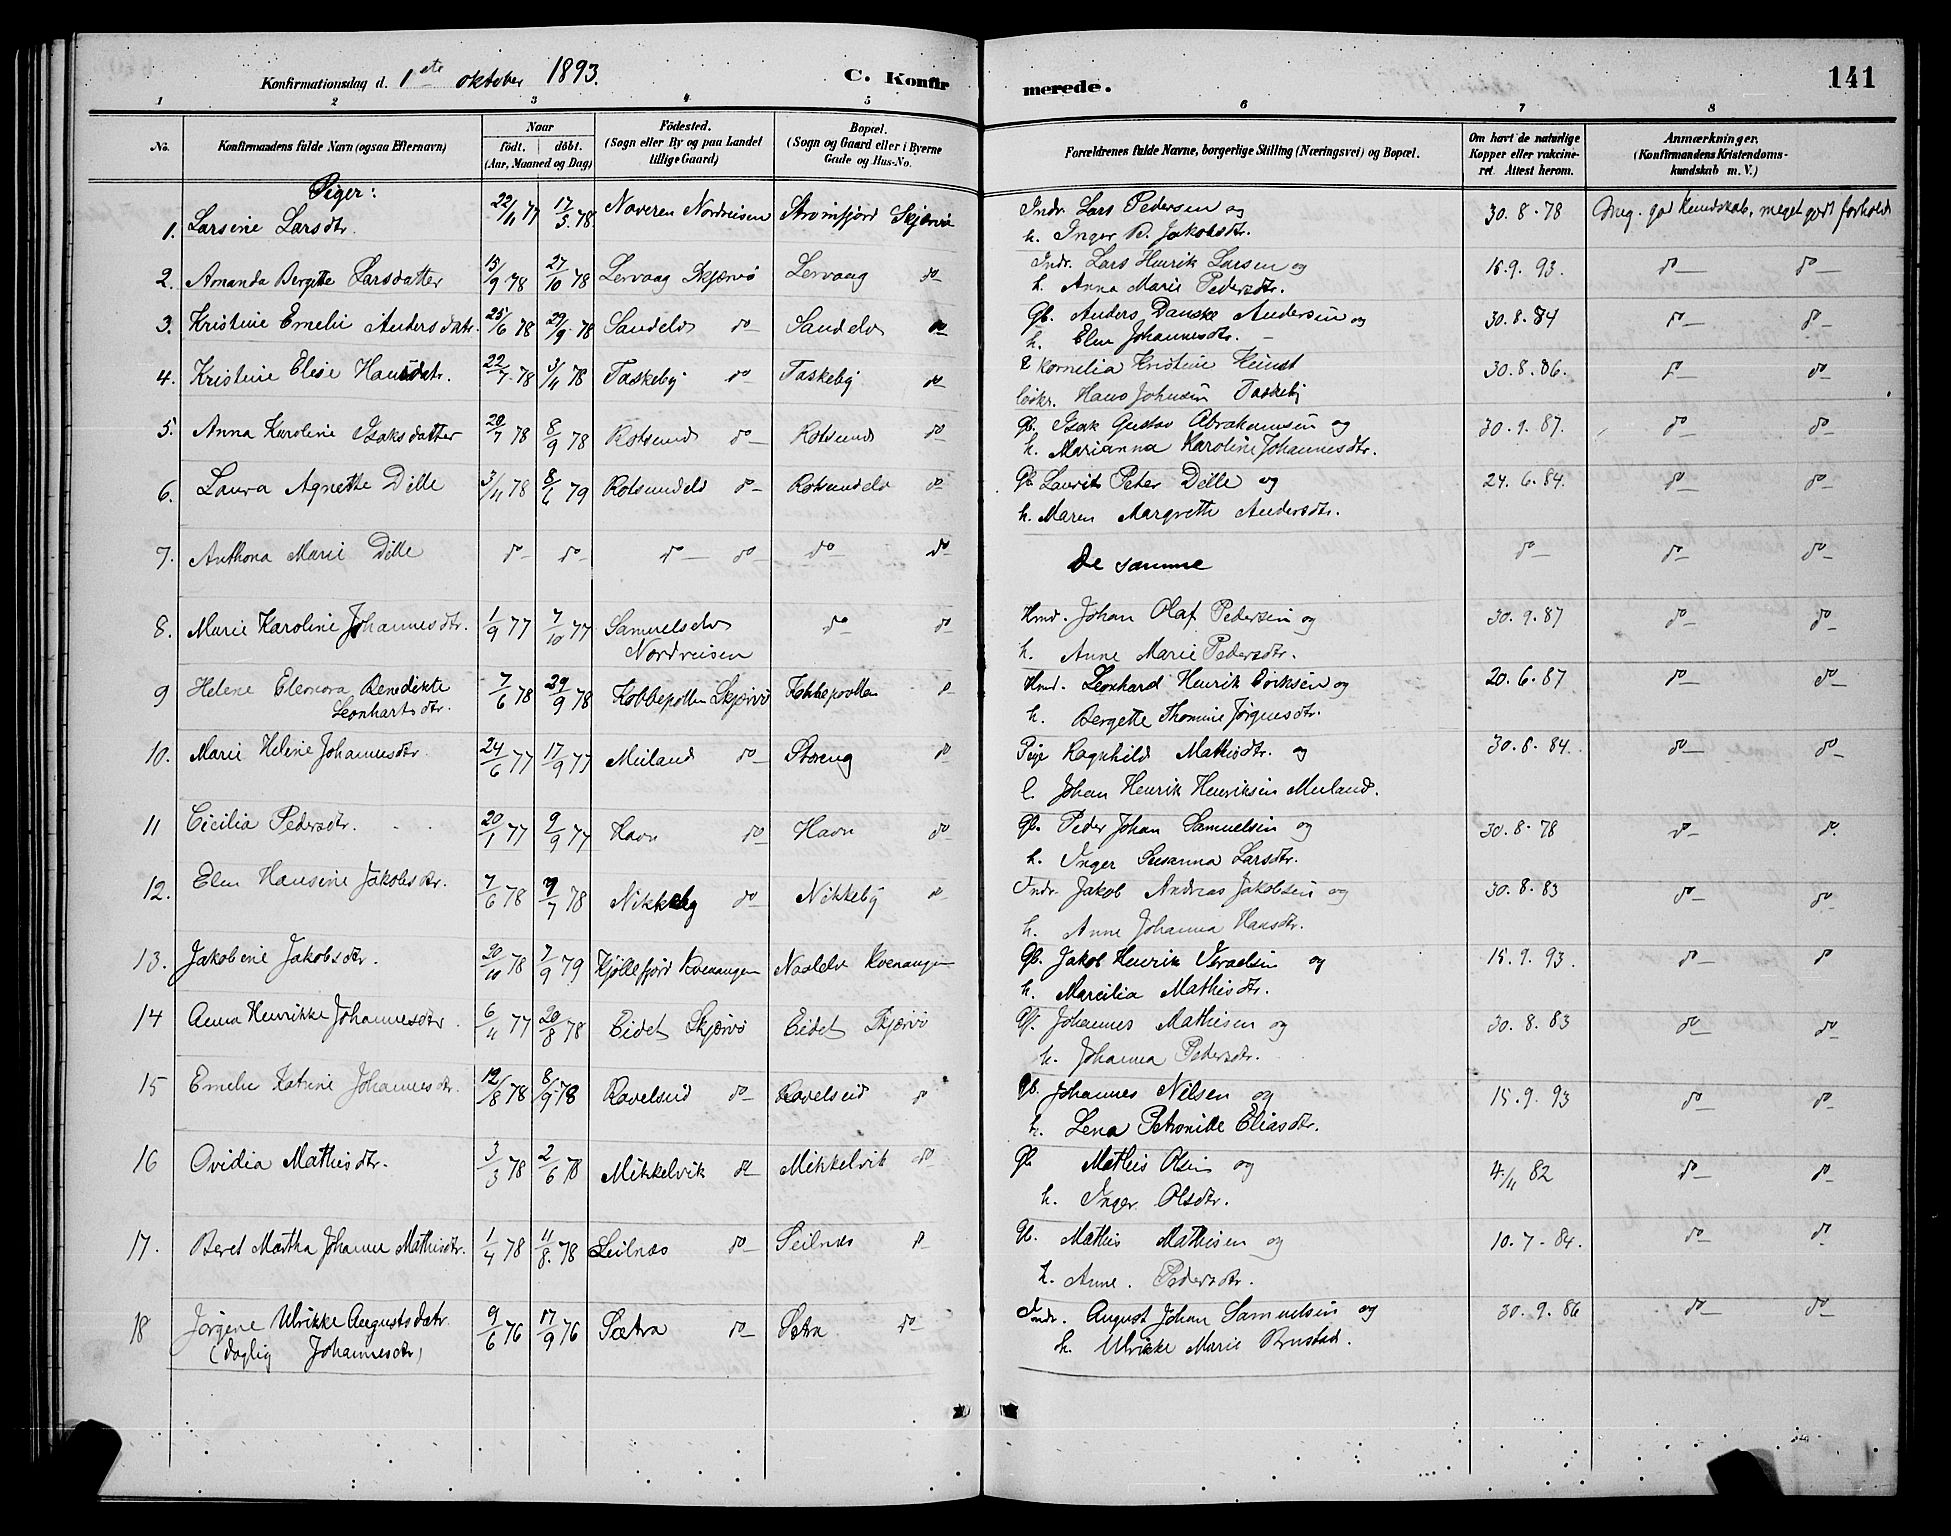 Konfirmationsdag d. 1ste oktober 1893. C. Konfirmerede. 141
1 2 3 4 5 6 7 8
No. Konfirmandens fulde Navn (ogsaa Efternavn) Naar født. døbt. (Aar, Maaned og Dag) Födested. (Sogn eller By og paa Landet tillige Gaard) Bopæl. (Sogn og Gaard eller i Byerne Gade og Hus-No. Forældrenes fulde Navne, borgerlige Stilling (Næringsvei) og Bopæl. Om havt de naturlige Kopper eller vakcineret. Attest herom. Anmærkninger. (Konfirmandens Kristendomskundskab m. V.)
Piger:
1. Larsine Larsdtr. 22/11 77 17/3 78 Naveren Nordreisen Strømfjord Skjærvø Indr. Lars Pedersen og 30.8.78 Meg. god Kundskab, meget godt forhold
h. Inger B. Jakobsdtr.
2. Amanda Bergitte Larsdatter 15/9 78 27/10 78 Lervaag Skjærvø Lervaag do Indr. Lars Henrik Larsen og 15.9.93. do do
h. Anna Marie Pedersdtr.
3. Kristine Emelie Andersdatr. 25/6 78 29/9 78 Sandelv do Sandelv do Gb. Anders Danske Andersen og 30.8.84 do do
h. Elen Johannesdtr.
4. Kristine Elise Hansdtr. 22/7 78 3/11 78 Taskeby do Taskeby do Kornelia Kristine 30.8.86. do do
løskr. Hans Johnsen Taskeby
5. Anna Karoline Isaksdatter 20/7 78 8/9 78 Rotsund do Rotsund do Gb. Isak Gustav Abrahamsen og 30.9.87. do do
h. Marianna Karoline Johannesdtr.
6. Laura Agnette Dille 3/11 78 8/6 79 Rotsundelv do Rotsundelv do Gb. Laurits Peter Dille og 24.6.84. do do
h. Maren Margrethe Andersdtr.
7. Anthona Marie Dille do do do do do do De samme do do do
8. Marie Karoline Johannesdtr. 1/9 77 7/10 77 Samuelselv do do Hmd. Johan Olaf Pedersen og 30.9.87 do do
Nordreisen h. Anne Marie Pedersdtr.
9 Helene Eleonora Benedikte 7/6 78 29/9 78 Kobbepollen Skjærvø Kobbepollen do Hmd. Leonhard Henrik Eriksen og 20.6.87 do do
Leonhartsdtr. h. Bergette Thomine Jørgensdtr.
10. Marie Heline Johannesdtr. 24/6 77 17/9 77 Meiland do Storeng do Pige Ragnhild Mathisdtr. og 30.8.84. do do
Johan Henrik Henriksen Meiland.
11 Cicilia Pedersdtr. 20/1 77 9/9 77 Havn do Havn do Gb. Peder Johan Samuelsen og 30.8.78 do do
h. Inger Susanna Larsdtr.
12. Elen Hansine Jakobsdtr. 7/6 78 7/7 78 Nikkeby do Nikkeby do Indr. Jakob Andreas Jakobsen og 30.8.83 do do
h. Anne Johanna Hansdtr.
13. Jakobine Jakobsdtr. 20/10 78 7/9 79 Kjøllefjord Kvenangen Naelelv Kvenangen Gb. Jakob Henrik Israelsen og 15.9.93. do do
h. Marcilia Mathisdtr.
14 Anna Henrikke Johannesdtr 6/11 77 20/8 78 Eidet Skjærvø Eidet Skjærvø Gb. Johannes Mathisen og 30.8.83 do do
h. Johanna Pedersdtr.
15 Emelie Katrine Johannesdtr. 12/8 78 8/9 78 Ravelseid do Ravelseid do Gb. Johannes Nilsen og 15.9.93 do do
h. Lena Petronille Eliasdtr.
16 Ovidia Mathisdtr. 3/3 78 2/6 78 Mikkelvik do Mikkelvik do Gb Mathis Olsen og 4/11 82 do do
h. Inger Olsdtr.
17. Beret Martha Johanne Mathisdtr. 1/4 78 11/8 78 Seilnes do Seilnes do Gb. Mathis Mathisen og 10.7.84. do do
h. Anne Pedersdtr.
18 Jørgine Ulrikke Augustsdatr. 9/6 76 17/9 76 Sætra do Sætra do Indr. August Johan Samuelsen og 30.9.86 do do
(daglig Johannesdtr) h. Ulrikke Marie Brustad.